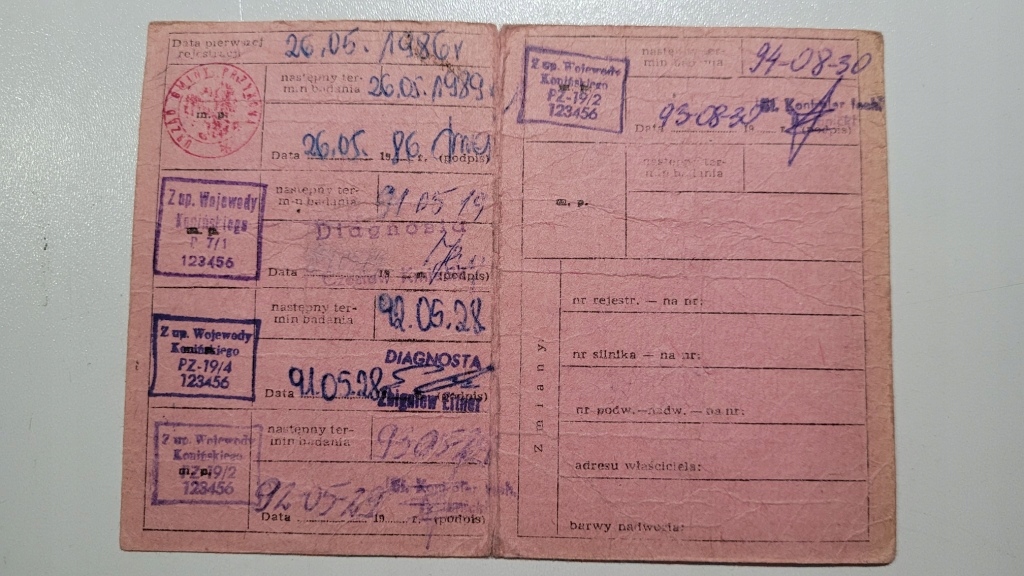 Data pierwszej rejestracji 26.05.1986r
URZĄD GMINY
m. p.
następny ter-
min badania 26.05.1989
Data 26.05. 1986 r. (podpis)
Z up. Wojewody
Konińskiego
m. p.
P 7/1
123456
następny ter-
min badania 91 05 19
Diagnosta
Data 19 r. (podpis)
Z up. Wojewody
Konińskiego
PZ-19/4
123456
następny ter-
min badania 92.05.28
DIAGNOSTA
Data 91.05.28 (podpis)
Zbigniew
Z up. Wojewody
Konińskiego
m. p.
PZ-19/2
123456
następny ter-
min badania 93 05
St. Kontroler tech.
92-05-28
Data 19 r. (podpis)
Z up. Wojewody
Konińskiego
m. p.
PZ-19/2
123456
następny ter-
min badania 94-08-30
St. Kontroler tech.
Data 93-08-30 19 r. (podpis)
następny ter-
min badania
m. p.
Zmiany:
nr rejestr. — na nr:
nr silnika — na nr:
nr podw.—nadw. — na nr:
adresu właściciela:
barwy nadwozia: